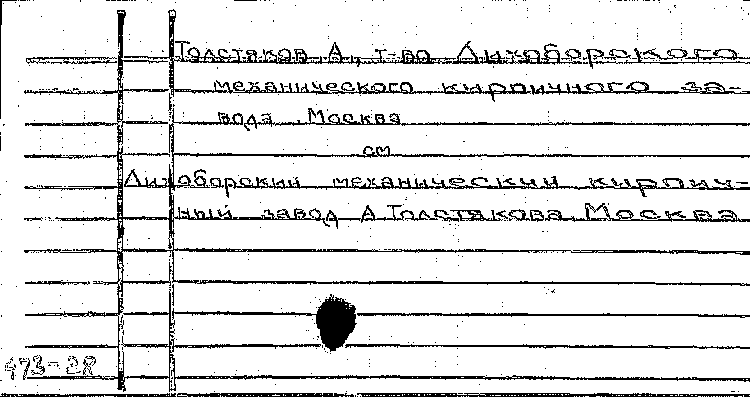 Толстяков, А., т-во Лихоборского
механического кирпичного за-
вода, Москва
см
Лихоборский механический кирпич-
ный завод А.Толстякова, Москва
473-28